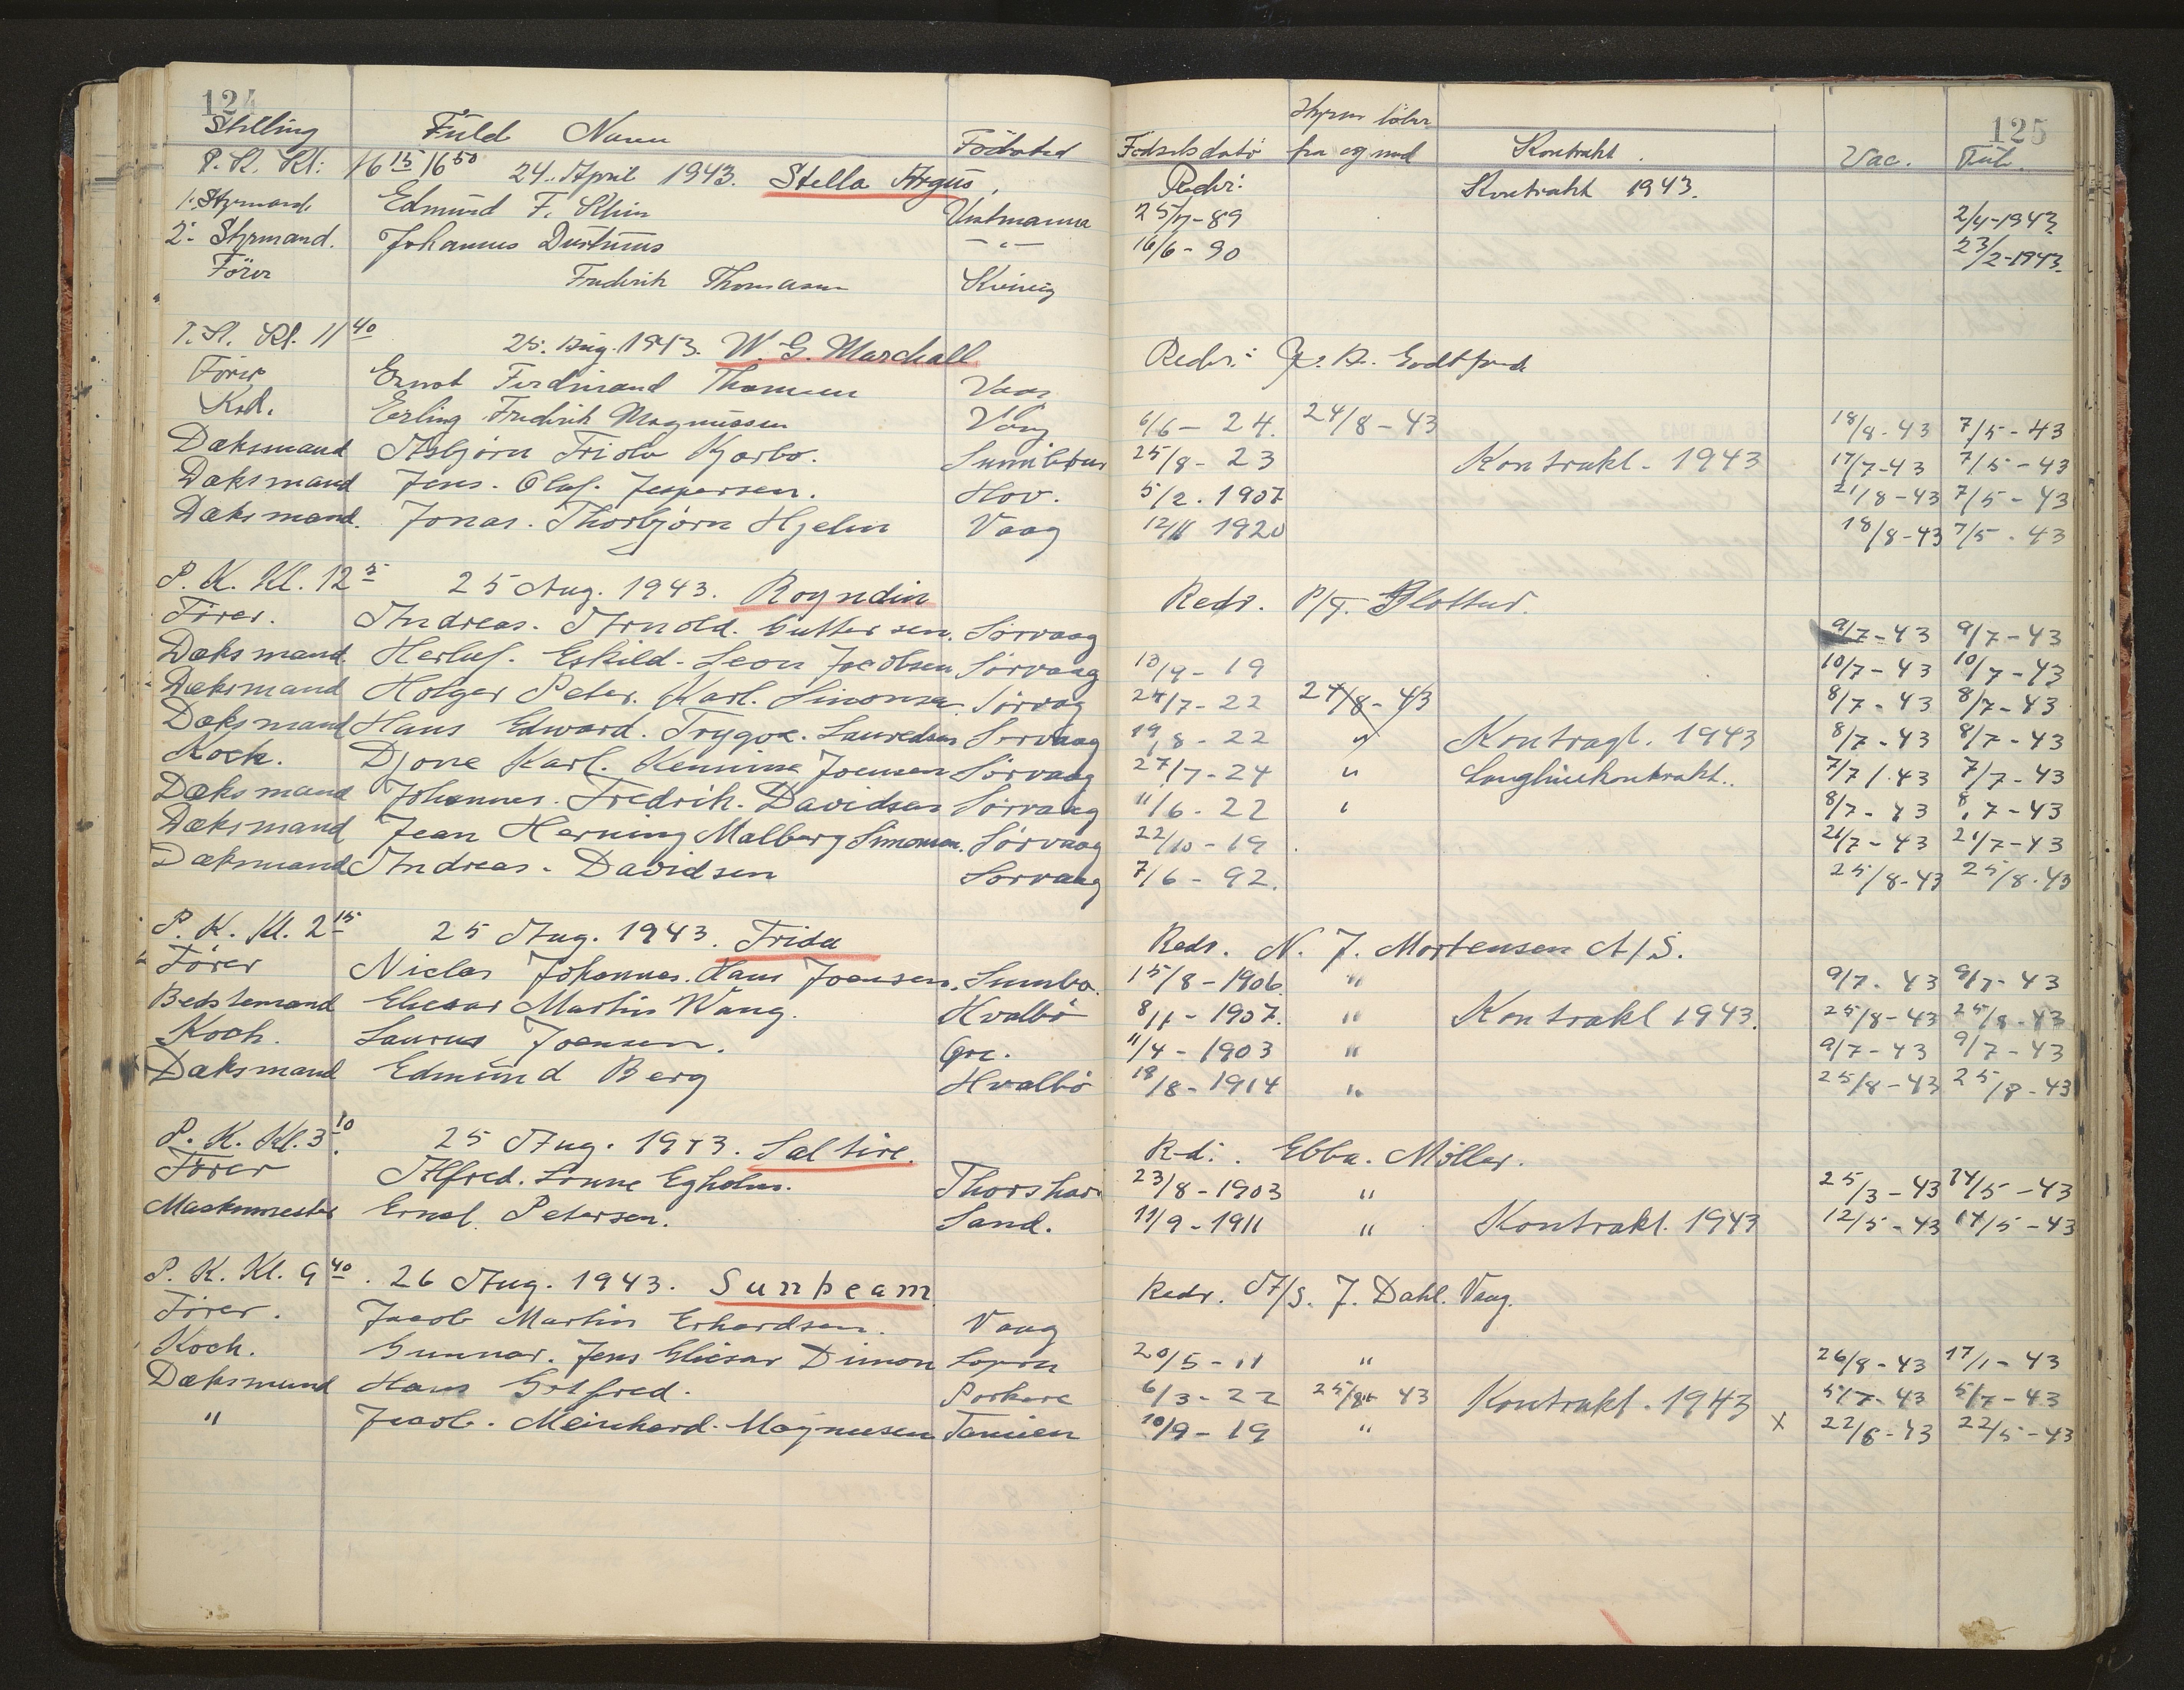 124 125
Stilling Fuld Navn Födested Fødselsdato Hyren löber fra og med Kontrakt. Vac. Tub.
P. K. Kl: 16 15 16 50 24. April 1943. Stella Argus. Redr: Kontrakt 1943.
1. Styrmand. Edmund F. Klein Vestmanna 25/7-89 2/4-1943
2. Styrmand. Johannus Dustinus - " - 16/6-90 23/2-1943.
Förer Fredrik Thomasen Kvivig
P. K. Kl. 11 40 25. Aug. 1943. W. G. Marchall Redr: Godtfred
Förer Ernst Ferdinand Thomsen Vaag
Kok. Erling Fredrik Magnussen Vaag 6/6 - 24. 24/8-43 18/8-43 7/5-43
Dæksmand Asbjørn Triolv Kjærbo. Sumbøur 25/8-23 Kontrakt-1943 17/7-43 7/5-43
Dæksmand Jens. Olaf. Jespersen. Hov. 5/2.1907 21/8-43 7/5-43
Dæksmand. Jonas. Thorbjørn Hjelm Vaag 12/11 1920 18/8-43 7/5-43
P. K. Kl. 12 5 25 Aug. 1943. Royndin Redr. P/F. Slottur.
Förer. Andreas. Arnold. Guttersen. Sørvaag 9/7-43 9/7-43
Dæksmand. Herluf. Eskild-Leon Jacobsen Sørvaag 13/9-19 10/7-43 10/7-43
Dæksmand Holger Peter. Karl. Simonsen. Sørvag 24/7-22 24/8-43 8/7-43 8/7-43
Dæksmand Hans Edward. Trygve. Lauredsen Sørvaag 19/8-22 " Kontragt. 1943 8/7-43 8/7-43
Koch. Djone Karl. Joensen Sørvaag 27/7-24 " Langlinekontrakt. 7/7/43 7/7-43
Dæksmand Johannes. Fredrik. Davidsen Sørvaag 11/6-22 " 8/7-43 8/7-43
Dæksmand Jean Herning Malberg Simonsen. Sørvaag 22/10-19 21/7-43 21/7-43
Dæksmand Andreas. Davidsen Sørvaag 7/6-92. 25/8-43 25/8-43
P. K. Kl. 2 15 25 Aug. 1943. Frida Redr. N. J. Mortensen A/S.
Förer Niclas Johannes. Hans Joensen. Sumbø. 15/8-1906. " 9/7-43 9/7-43
Bedstemand Eliesar Martin Wang. Hvalbö 8/11-1907. " Kontrakt 1943. 25/8-43 25/8-43
Koch. Laurus Joensen. 11/4-1903 " 9/7-43 9/7-43
Dæksmand Edmund Berg Hvalbö 18/8-1914 " 25/8-43 25/8-43
P. K. Kl. 3 10. 25 Aug. 1943. Saltire. Red: Ebba. Möller.
Förer Alfred. Egholm. Thorshavn 23/8-1903 " 25/3-43 14/5-43
Maskinmester Ernst. Petersen. Sand. 11/9-1911 " Kontrakt. 1943 12/5-43 14/5-43
P. K. Kl. 9 40. 26 Aug. 1943. Sunbeam Redr. A/S. J. Dahl. Vaag.
Förer. Jacob Martin Erhardsen. Vaag
Koch. Gunnar. Jens Eliesar Dimon 20/5-11 " 26/8-43 17/1-43
Dæksmand Hans Gotfred. Porkere 6/3-22 25/8-43 Kontrakt. 1943 5/7-43 5/7-43
" Jacob. Meinhard. Magnussen 10/9-19 " x 22/6-43 22/5-43